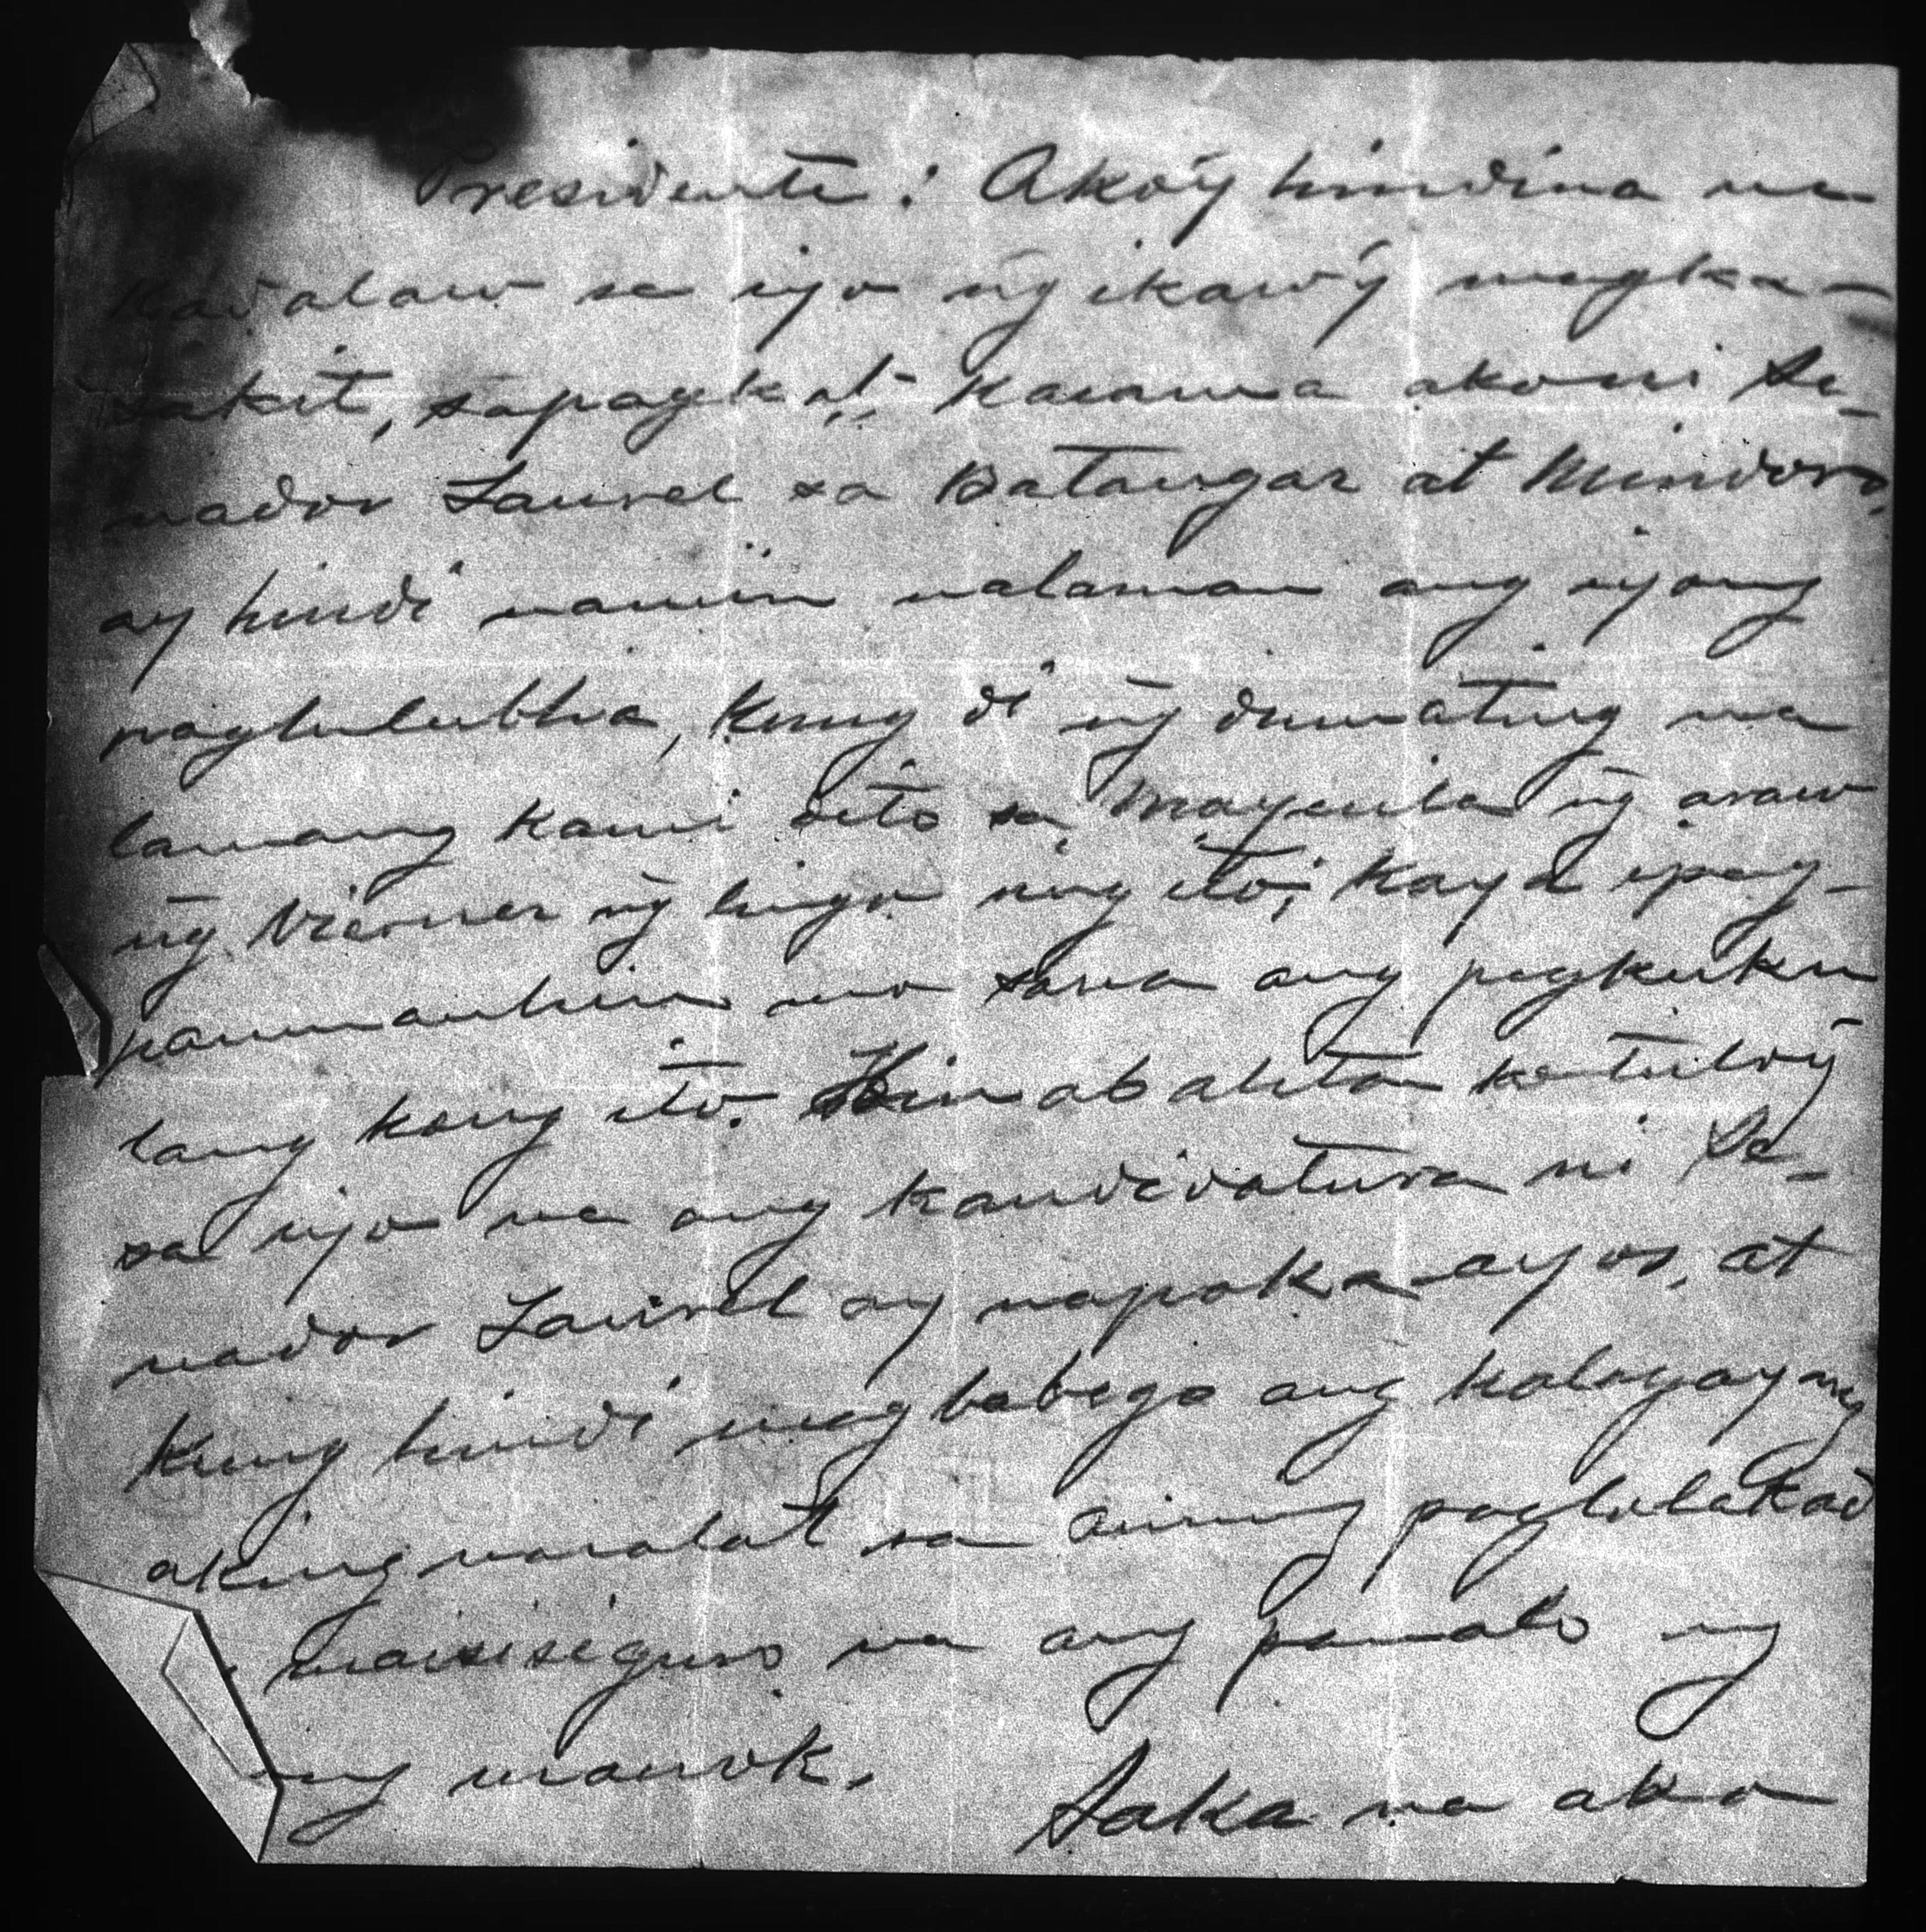 Presidente: Ako'y hindina na-
kadalaw sa iyo n͠g ikaw'y magka-
sakit, sapagka't kasama akoni Se-
nador Laurel sa Batangas at Mindoro,
ay hindi namin nalaman ang iyong
paglulubha, kung di n͠g dumating na
lamang kami dito sa Maynila n͠g araw
n͠g Viernes n͠g lingo ng ito; kaya ipag-
paumanhin mo sana ang pagkuku
lang kong ito. Ibinabalita ko tuloy
sa iyo na ang kandidatura ni Se-
nador Laurel ay napaka-ayos, at
kung hindi magbabago ang kalagayang
aking nasalat sa aming paglalakad
maisisiguro na ang panalo ng
ng manok.
Saka na ako